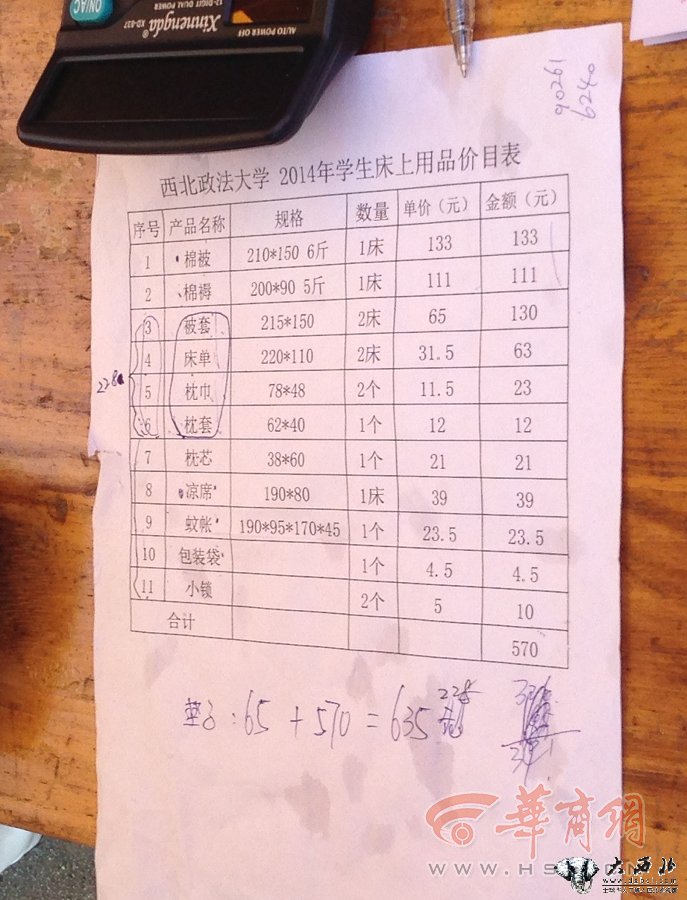 ON/AC
Xinnengda®
XD-837
12-DIGIT DUAL POWER
AUTO POWER OFF
90261
6240
西北政法大学 2014年学生床上用品价目表
序号 产品名称 规格 数量 单价（元） 金额（元）
1 棉被 210*150 6斤 1床 133 133
2 棉褥 200*90 5斤 1床 111 111
3 被套 215*150 2床 65 130
4 床单 220*110 2床 31.5 63
5 枕巾 78*48 2个 11.5 23
6 枕套 62*40 1个 12 12
7 枕芯 38*60 1个 21 21
8 凉席 190*80 1床 39 39
9 蚊帐 190*95*170*45 1个 23.5 23.5
10 包装袋 1个 4.5 4.5
11 小锁 2个 5 10
合计 570
228
垫子:65+570=635
228
華商網
大西北